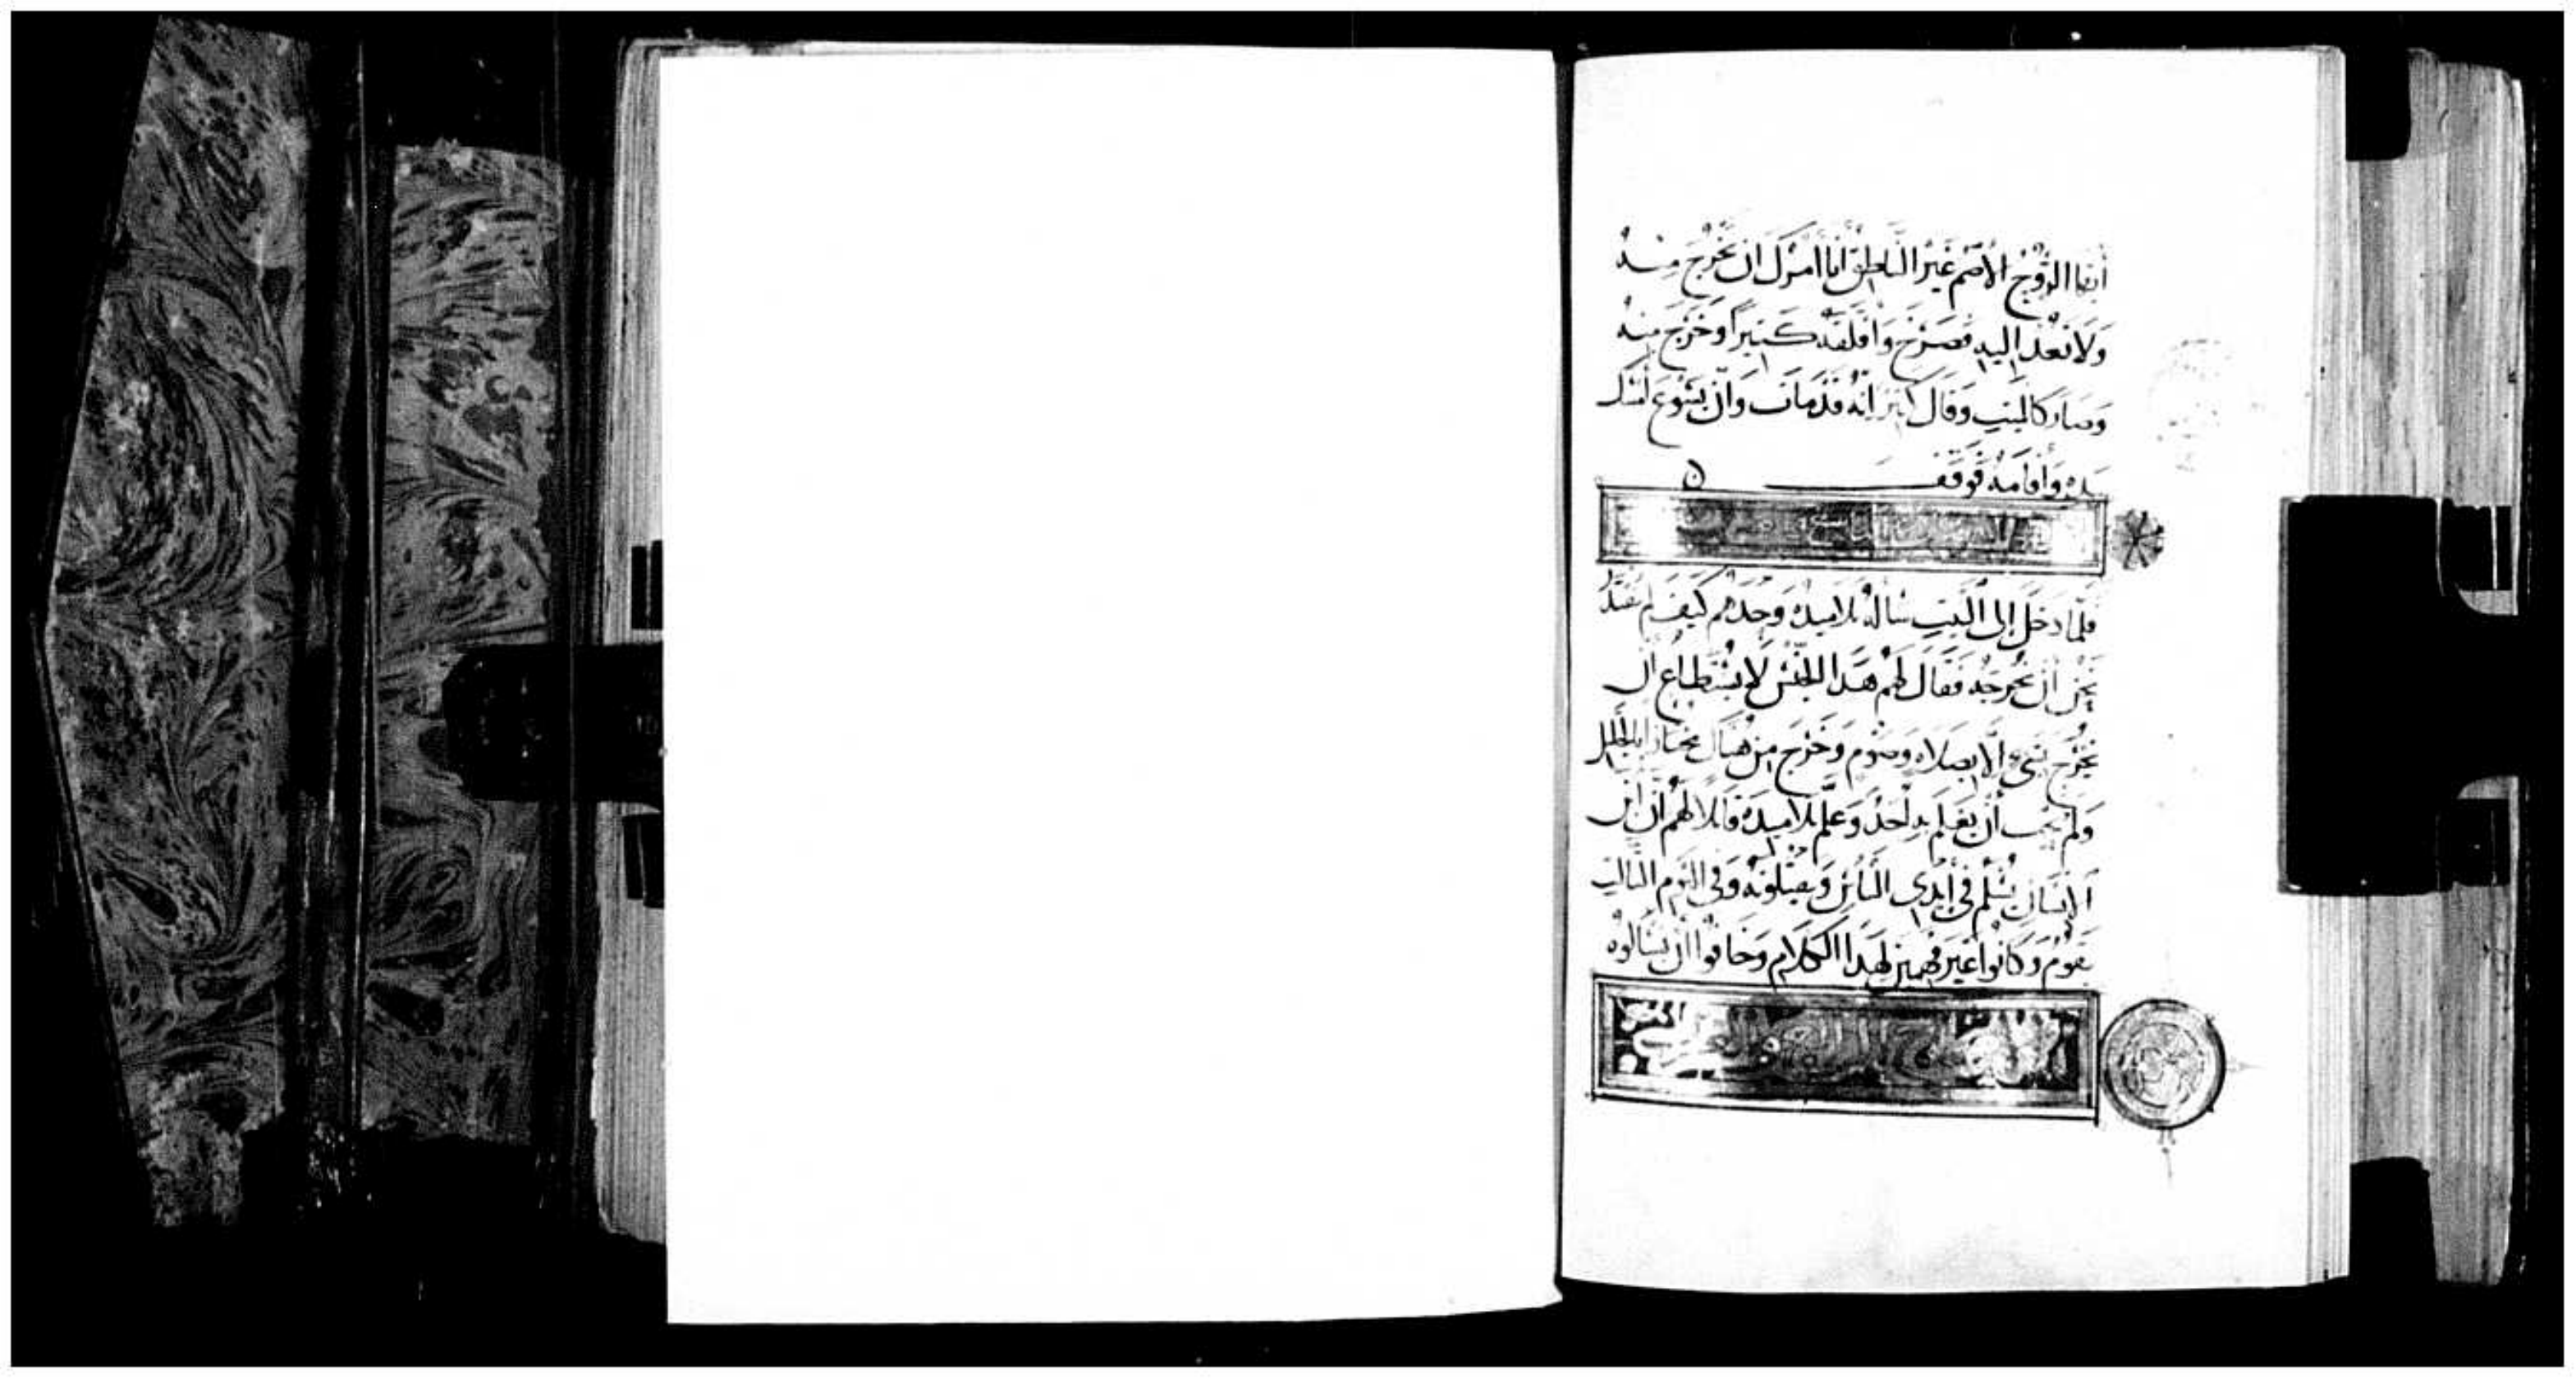 أيها الروح الأصم غير الناطق أنا امرك ان تخرج منه
ولا تعد اليه فصرخ وأقلقه كثيرا وخرج منه
وصار كالميت وقال كثير انه قد مات وان يسوع امسك
يده وأقامه فوقف
فلما دخل إلى البيت سأله تلاميذه وحدهم كيف لم نقدر
نحن أن نخرجه فقال لهم هذا الجنس لا يستطاع ان
يخرج بشيء إلا بصلاه وصوم وخرج من هناك مجتازا بالجليل
ولم يحب أن يعلم به احد وعلم تلاميذه قائلا لهم ان ابن
الإنسان يسلم في أيدي الناس ويقتلونه وفي اليوم الثالث
يقوم وكانوا غير فهمين لهذا الكلام وخافوا أن يسالوه